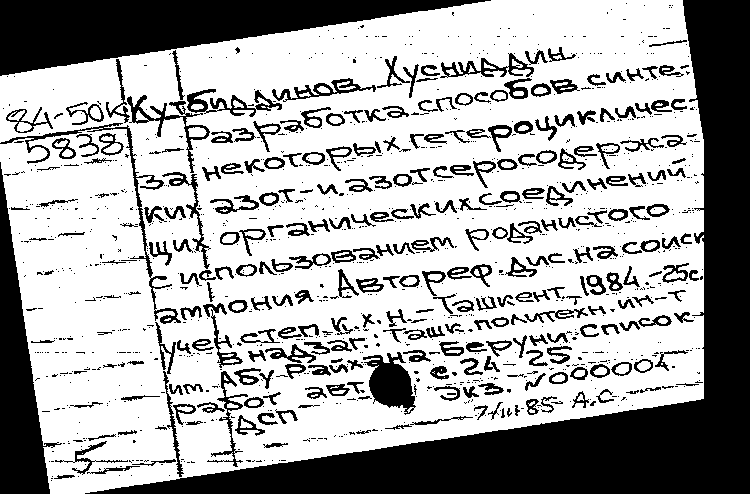 84-50к Кутбиддинов, Хусниддин
5838 Разработка способов синте-
за некоторых гетероцикличес-
ких азот- и азотсеросодержа-
щих органических соединений
с использованием роданистого
аммония: Автореф. дис. на соиск.
учен. степ. к.х.н. - Ташкент, 1984. - 25с.
В надзаг.: Ташк. политехн. ин-т
им. Абу Райхана Беруни. Список
работ авт.: с. 24-25.
ДСП Экз. №000004.
7/III-85 А.С.
5